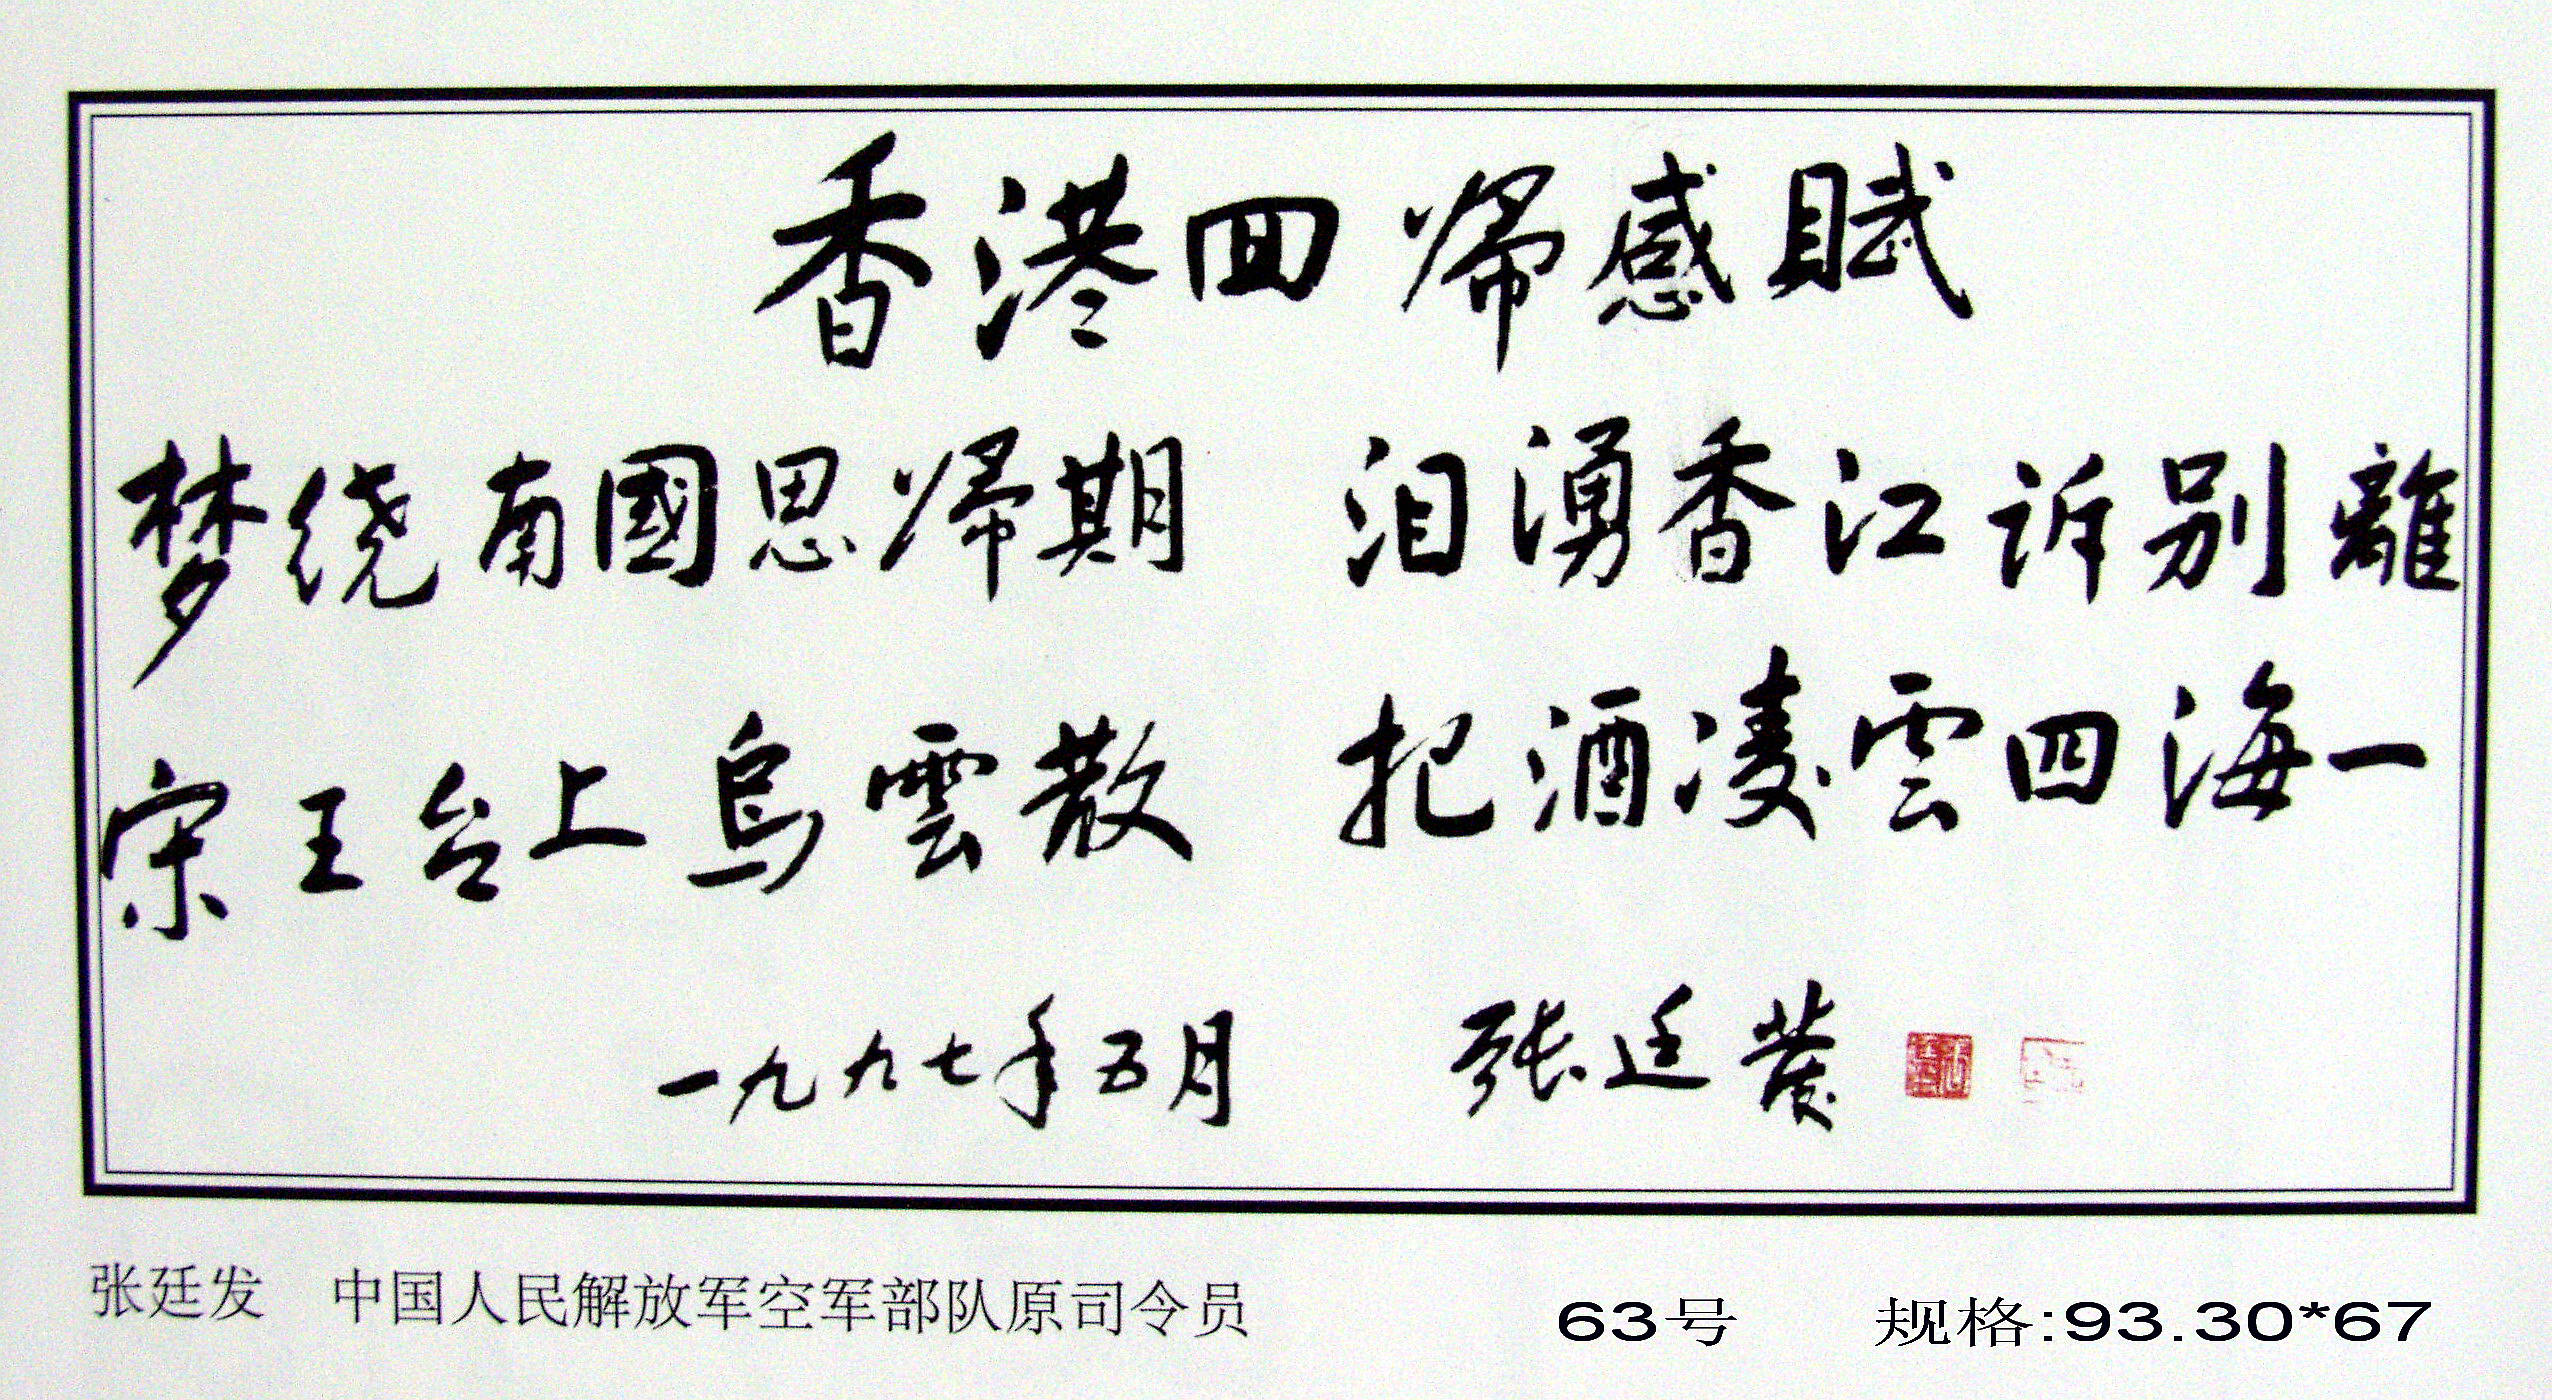 香港回歸感賦
梦绕南國思歸期 泪湧香江诉别離
宋王台上烏雲散 把酒凌雲四海一
一九九七年五月 张廷发
张廷发 中国人民解放军空军部队原司令员 63号 规格:93.30*67